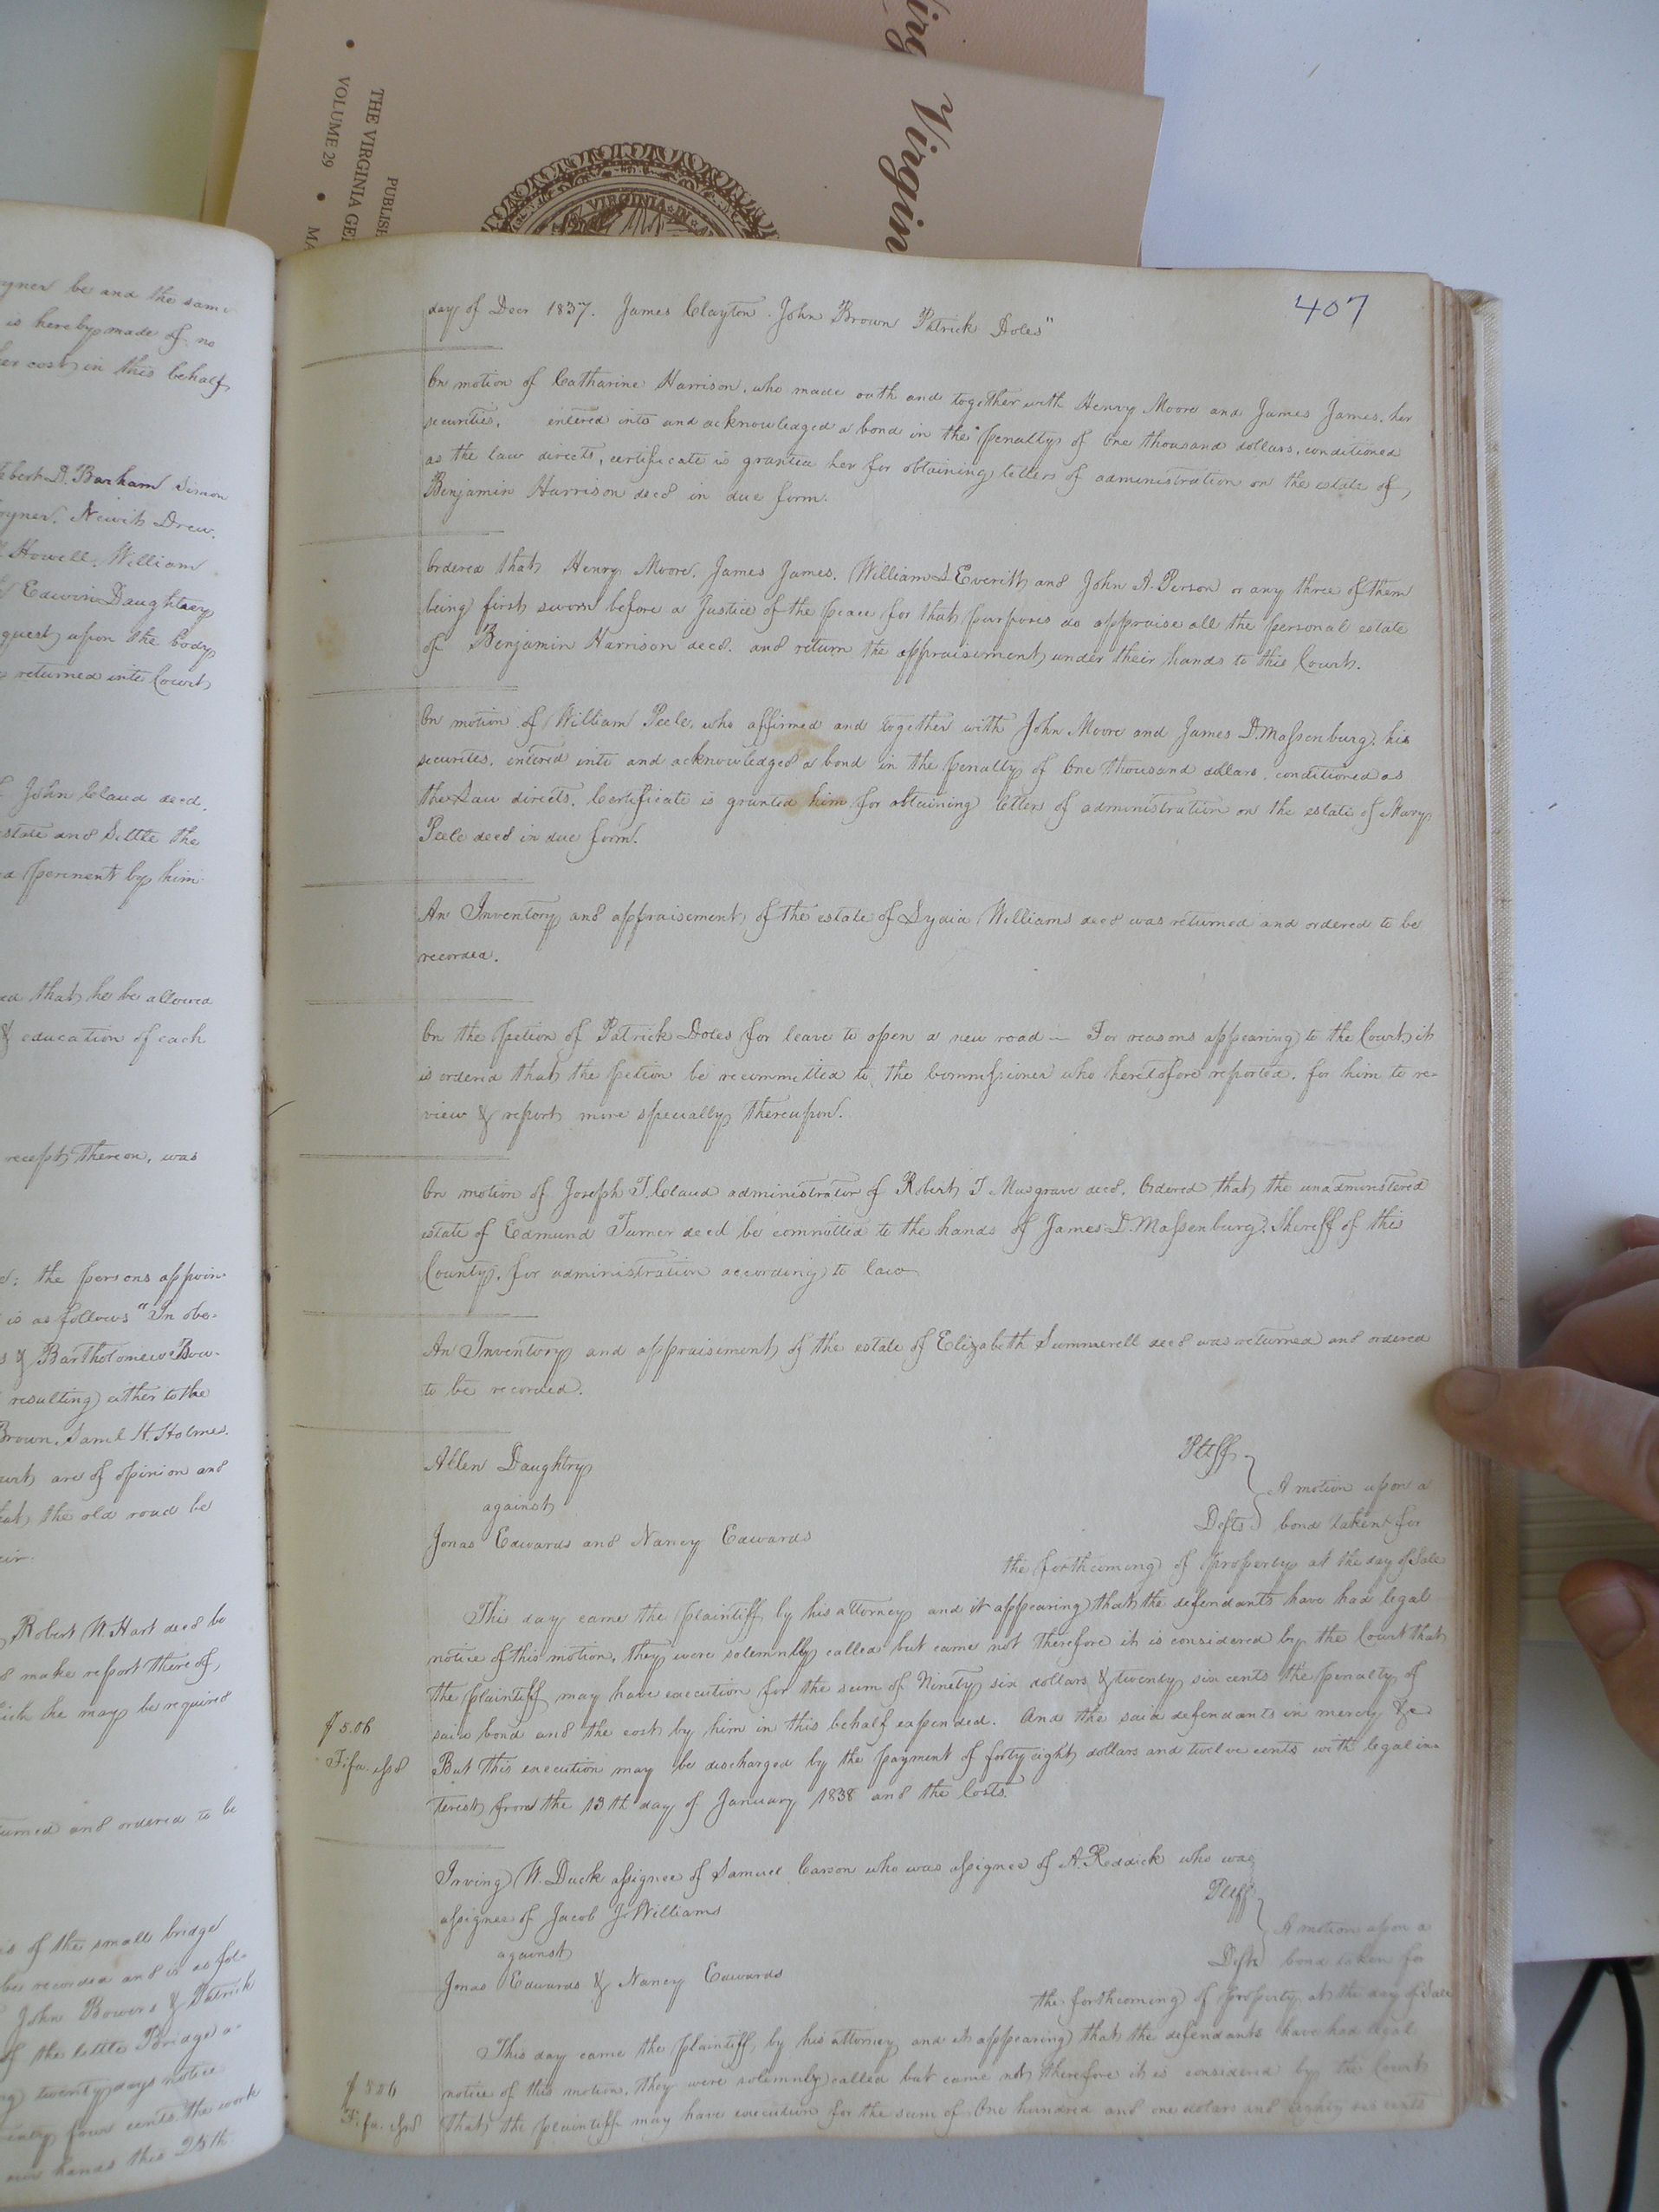 THE VIRGINIA GE
VOLUME 29 • MA
PUBLISH
VIRGINIA IN
Virgin
yner be and the same
is hereby made of no
cost in this behalf
D. Barham Simon
oyner, Newit Drew,
Howell, William
Edwin Daughtrey
quest upon the body
returned into Court
John Claud decd.
state and Settle the
by him
ed that he be allowed
& education of each
recept thereon, was
the persons appoin-
is as follows "In obe-
s & Bartholomew Bow-
resulting either to the
Brown, Saml H. Holmes.
are of opinion and
the old road be
Robert W. Hart decd be
make report thereof,
he may be required
urned and ordered to be
s of the small bridge
be recorded and is as fol-
John Bowers & Patrick
of the little Bridge a-
twenty days notice
four cents, the work
our hands this 25th
407
day of Decr 1837. James Clayton. John Brown Patrick Doles"
On motion of Catharine Harrison, who made oath and together with Henry Moore and James James, her
securities, entered into and acknowledged a bond in the penalty of One thousand dollars, conditioned
as the law directs, certificate is granted her for obtaining letters of administration on the estate of
Benjamin Harrison decd in due form.
Ordered that Henry Moore, James James, William D Everitt and John A. Person or any three of them
being first sworn before a Justice of the peace for that purpose do appraise all the personal estate
of Benjamin Harrison decd. and return the appraisement under their hands to this Court.
On motion of William Peele, who affirmed and together with John Moore and James D. Massenburg, his
securites, entered into and acknowledged a bond in the penalty of One thousand dollars, conditioned as
the Law directs, Certificate is granted him for obtaining letters of administration on the estate of Mary
Peele decd in due form.
An Inventory and appraisement of the estate of Lydia Williams decd was returned and ordered to be
recorded.
On the petion of Patrick Doles for leave to open a new road — For reasons appearing to the Court it
is ordered that the petion be recommitted to the Commissioner who heretofore reported, for him to re-
view & report more specially thereupon.
On motion of Joseph T. Claud administrator of Robert T Musgrave decd. Ordered that the unadministered
estate of Edmund Turner decd be committed to the hands of James D. Massenburg, Sheriff of this
County, for administration according to law
An Inventory and appraisement of the estate of Elizabeth Summerell decd was returned and ordered
to be recorded.
Allen Daughtry Pltff
against A motion upon a
Jonas Edwards and Nancy Edwards Defts bond taken for
the forthcoming of property at the day of Sale
This day came the plaintiff by his attorney and it appearing that the defendants have had legal
notice of this motion, they were solemnlly called but came not therefore it is considered by the Court that
the plaintiff may have execution for the sum of Ninety six dollars & twenty six cents the penalty of
$5.06 said bond and the cost by him in this behalf expended. And the said defendants in mercy &c
Fi.fa. issd But this execution may be discharged by the payment of forty eight dollars and twelve cents with legal in-
terest from the 13th day of January 1838 and the Costs.
Irving W. Duck assignee of Samuel Carson who was assignee of A. Reddick who was
assignee of Jacob J. Williams Pltff
against A motion upon a
Jonas Edwards & Nancy Edwards Defts bond taken for
the forthcoming of property at the day of Sale
This day came the plaintiff, by his attorney and it appearing that the defendants have had legal
notice of this motion, they were solemnly called but came not therefore it is considered by the Court
Fi.fa. issd that the plaintiff may have execution for the sum of One hundred and one dolars and eighty six cents